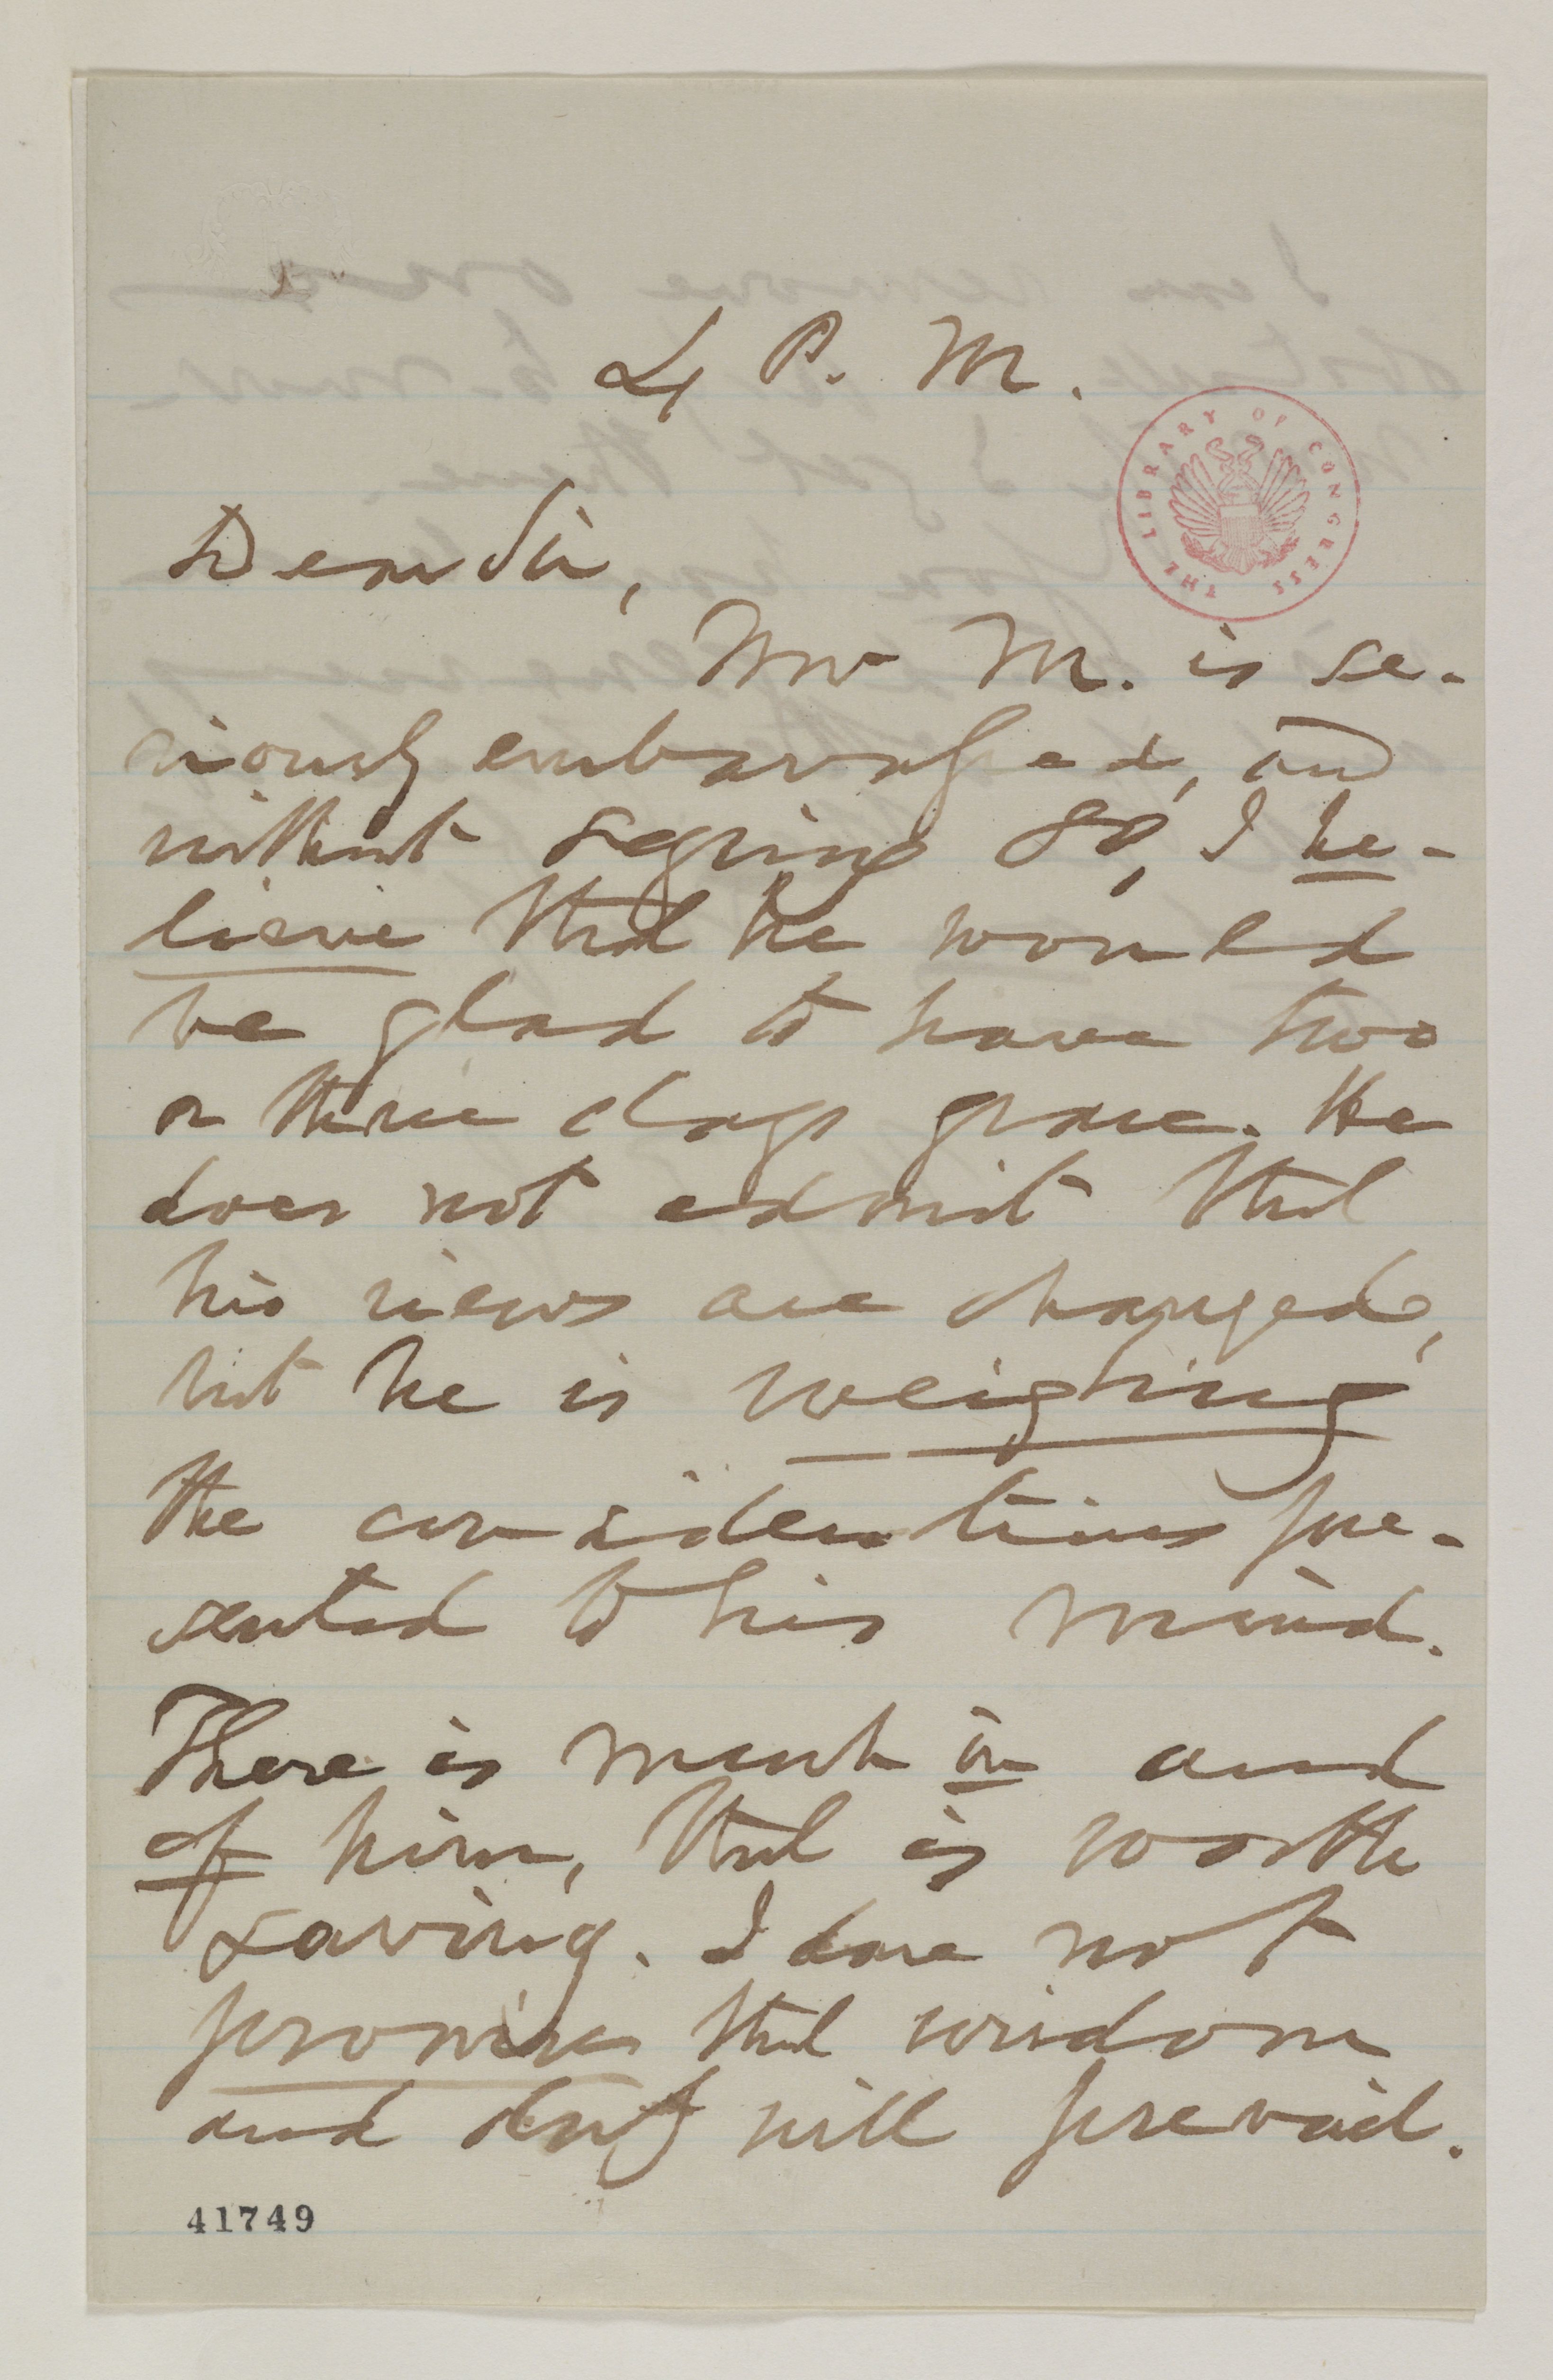 4 P. M.
THE LIBRARY OF CONGRESS
Dear Sir,
Mr M. is se-
riously embarassed, and
without saying so, I be-
lieve that he would
be glad to have two
or three days grace. He
does not admit that
his views are changed,
but he is weighing
the considerations pre-
sented to his mind.
There is much in and
of him, that is worth
saving. I dare not
promise that wisdom
and duty will prevail.
41749